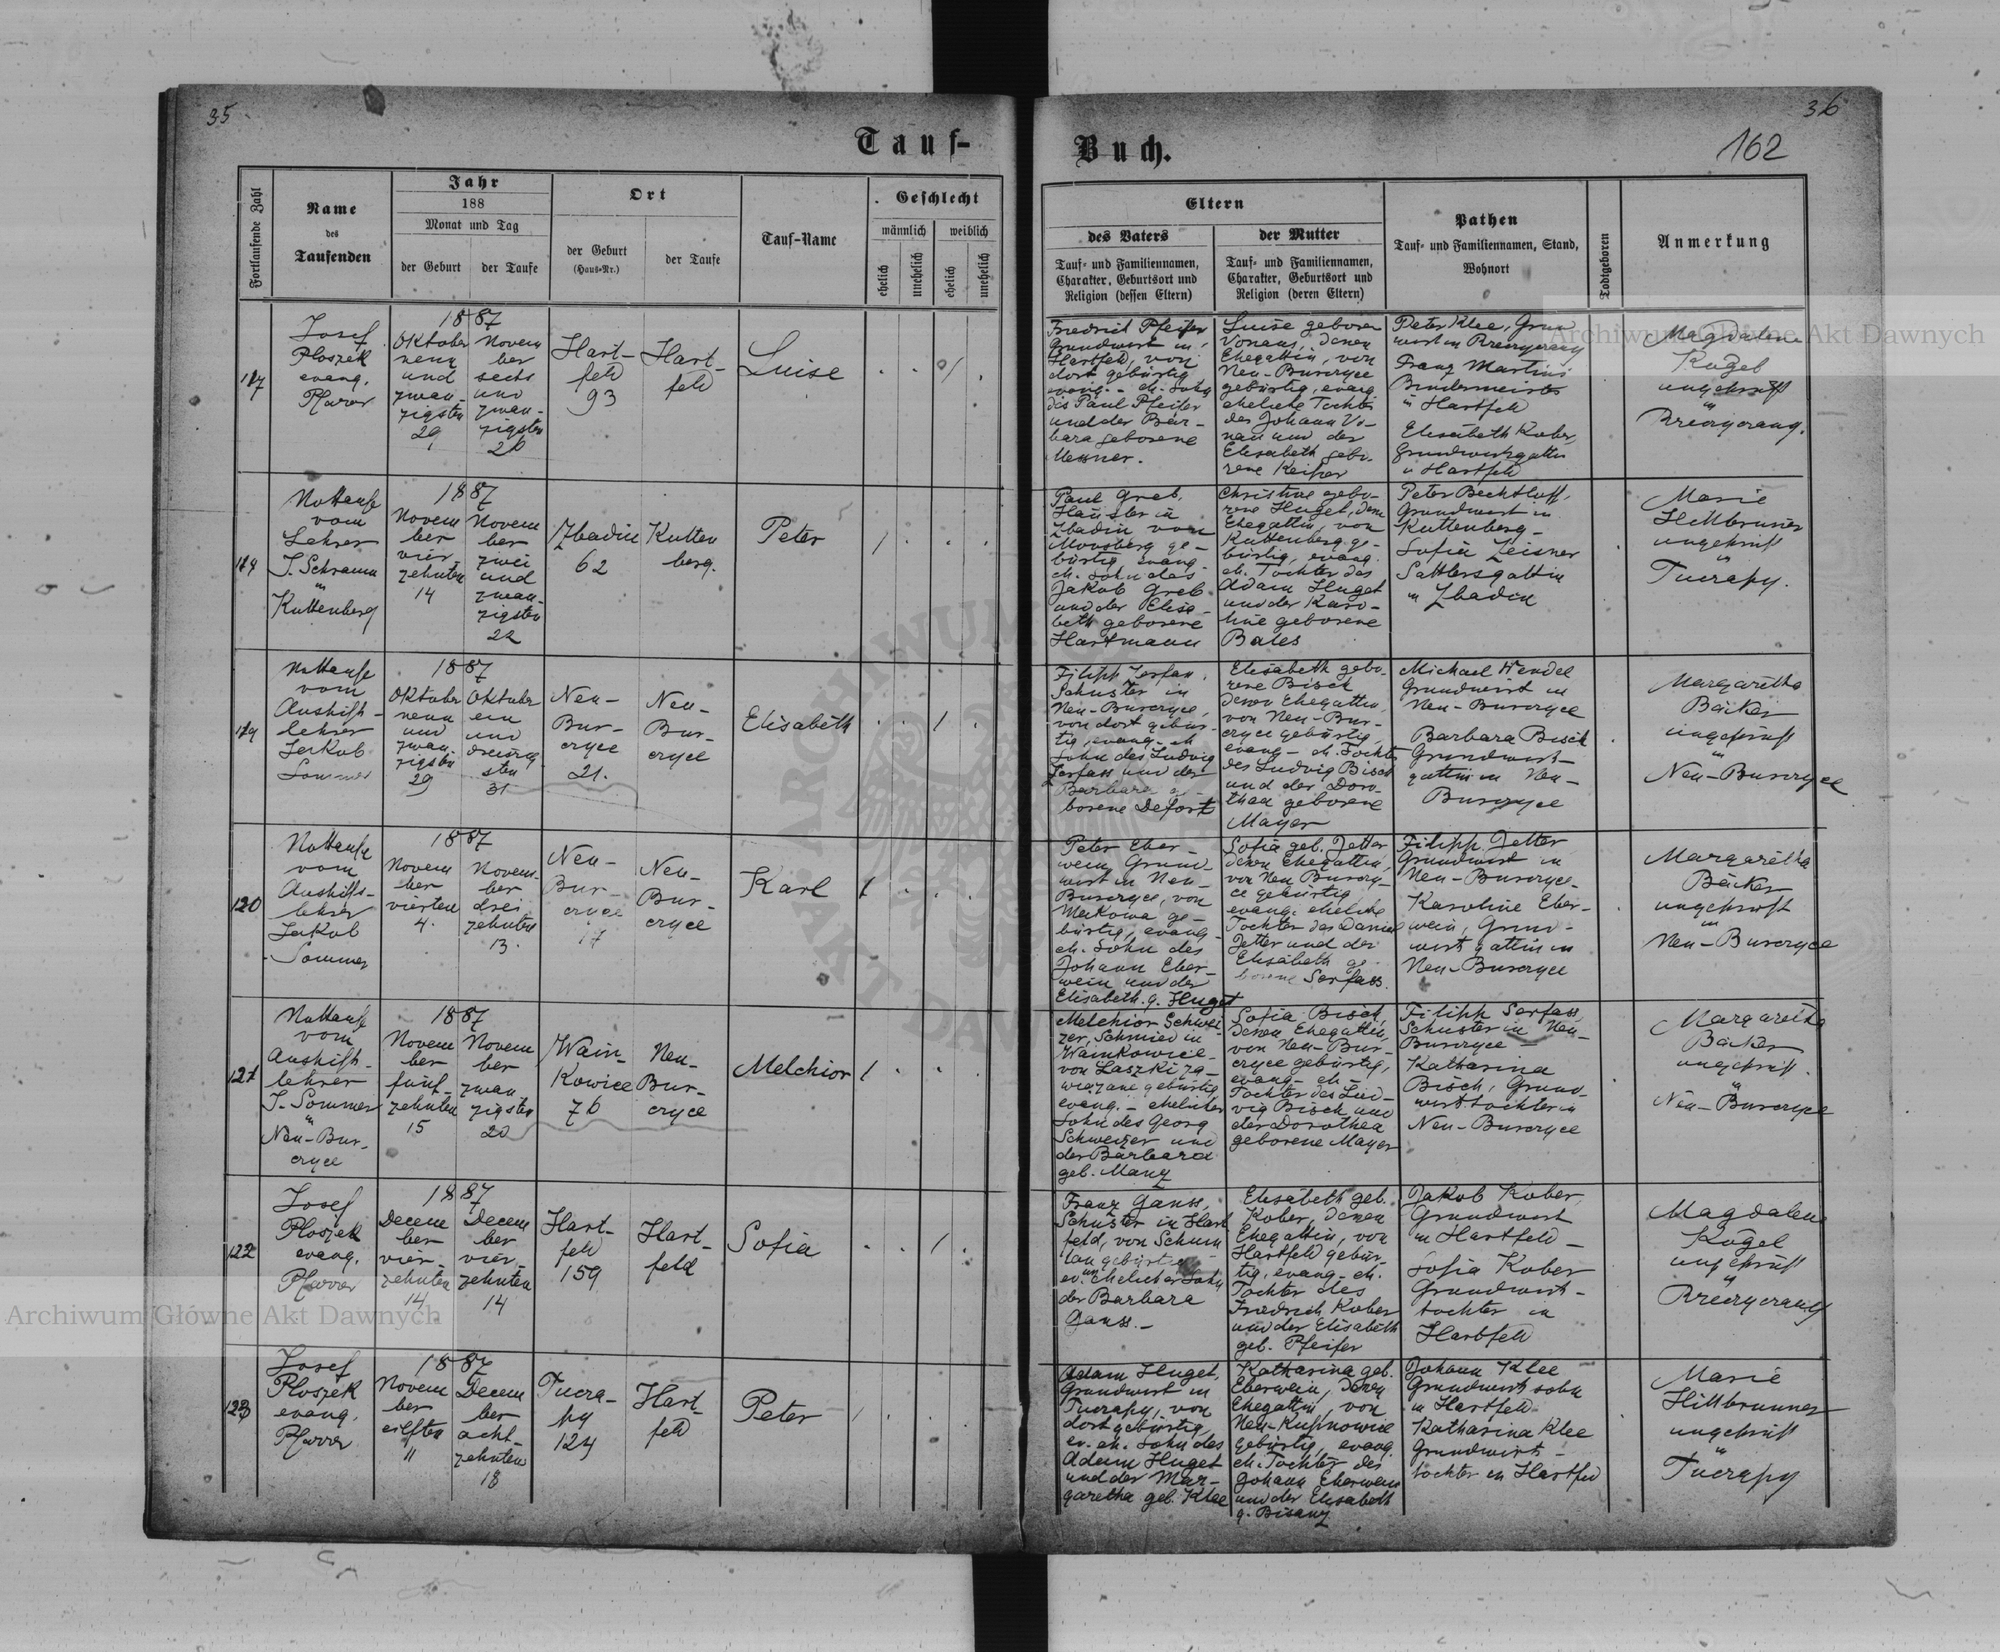 35
36
162
Tauf-
Buch.
Fortlaufende Zahl
Name
des
Taufenden
Jahr
188
Monat und Tag
der Geburt
der Taufe
Ort
der Geburt
(Haus-Nr.)
der Taufe
Tauf-Name
Geschlecht
männlich
weiblich
ehelich
unehelich
ehelich
unehelich
Eltern
des Vaters
Tauf- und Familiennamen,
Charakter, Geburtsort und
Religion (dessen Eltern)
der Mutter
Tauf- und Familiennamen,
Charakter, Geburtsort und
Religion (deren Eltern)
Pathen
Tauf- und Familiennamen, Stand,
Wohnort
Todtgeboren
Anmerkung
Josef
Ploszek
evang.
Pfarrer
1887
Oktober
neun
und
zwan-
zigsten
29
Novem
ber
sechs
und
zwan-
zigsten
26
Hart-
feld
93
Hart-
feld
Luise
Friedrich Pfeifer
Grundwirt in
Hartfeld, von
dort gebürtig
evang. - eh. Sohn
des Paul Pfeifer
und der Bar-
bara geborene
Messner.
Luise geborene
Vonaus, deren
Ehegattin, von
Neu-Burczyce
gebürtig, evang
eheliche Tochter
des Johann Vo-
nau und der
Elisabeth gebo-
rene Keiper
Peter Klee, Grund
Franz Martini
Bindermeister
in Hartfeld
Elisabeth Kober,
Grundwirtsgattin
in Hartfeld
Magdalene
Kugel
ungeprüft
in
Nottaufe
vom
Lehrer
J. Schramm
in
Kuttenberg
1887
Novem
ber
vier
zehnten
14
Novem
ber
zwei
und
zwan-
zigsten
22
Zbadin
62
Kutten
berg.
Peter
Paul Greb,
Häusler in
Zbadin vom
Moosberg ge-
bürtig evang.
eh. Sohn des
Jakob Greb
und der Elisa-
beth geborene
Hartmann
Christine gebo-
rene Huget, dem
Ehegattin, von
Kuttenberg ge-
bürtig, evang.
eh. Tochter des
Adam Huget
und der Karo-
line geborene
Bales
Peter Bechtloff,
Grundwirt in
Kuttenberg -
Sofia Zeisner
Sattlersgattin
in Zbadin
Marie
Hillbrunner
ungeprüft
in
Tucrapy.
Nottaufe
vom
Aushilfs-
lehrer
Jakob
Sommer
1887
Oktober
neun
und
zwan-
zigsten
29
Oktober
ein
und
dreissig
sten
31
Neu-
Bur-
czyce
21.
Neu-
Bur-
czyce
Elisabeth
Filipp Serfass,
Schuster in
Neu-Burczyce,
von dort gebür-
tig, evang. eh
Sohn des Ludwig
Serfass und der
Barbara ge-
borene Defort
Elisabeth gebo-
rene Bisch
deren Ehegattin,
von Neu-Bur-
czyce gebürtig,
evang - eh. Tochter
des Ludvig Bisch
und der Doro-
thea geborene
Mayer
Michael Hendel
Grundwirt in
Neu-Burczyce
Barbara Bisch
Grundwirts-
gattin in Neu-
Burczyce
Margaretha
Bäcker
ungeprüft
in
Neu-Burczyce
120
Nottaufe
vom
Aushilfs-
lehrer
Jakob
Sommer
1887
Novem
ber
vierten
4.
Novem-
ber
drei
zehnten
13.
Neu-
Bur-
czyce
17
Neu-
Bur-
czyce
Karl
Peter Eber-
wein Grund-
wirt in Neu-
Burczyce, von
Mokowa ge-
bürtig, evang-
eh. Sohn des
Johann Eber-
wein und der
Elisabeth g. Huget
Sofia geb. Jetter
deren Ehegattin,
von Neu Burczy-
ce gebürtig
evang. eheliche
Tochter des Daniel
Jetter und der
Elisabeth ge-
borene Serfass.
Filipp Jetter
Grundwirt in
Neu-Burczyce-
Karoline Eber-
wein, Grund-
wirtgattin in
Neu-Burczyce
Margaretha
Bäcker
ungeprüft
in
Neu-Burczyce
121
Nottaufe
vom
Aushilfs-
lehrer
J. Sommer
in
Neu-Bur-
czyce
1887
Novem
ber
fünf-
zehnten
15
Novem
ber
zwan
zigsten
20
Wain-
kowice
76
Neu-
Bur-
czyce
Melchior
Melchior Schwei-
zer, Schmied in
Wainkowice-
von Laszki za-
wiazane gebürtig
evang. - ehelicher
Sohn des Georg
Schweizer und
der Barbara
geb. Manz
Sofia Bisch,
deren Ehegattin,
von Neu-Bur-
czyce gebürtig,
evang - eh -
Tochter des Lud-
vig Bisch und
der Dorothea
geborene Mayer
Filipp Serfass,
Schuster in Neu-
Burczyce -
Katharina
Bisch, Grund-
wirtstochter in
Neu-Burczyce
Margaretha
Bäcker
ungeprüft.
in
Neu-Burczyce
122
Josef
Ploszek
evang.
Pfarrer
1887
Decem
ber
vier-
zehnten
14
Decem
ber
vier-
zehnten
14
Hart-
feld
159
Hart-
feld
Sofia
Franz Ganss,
Schuster in Hart
feld, von Schum
lau gebürtig
ev. unehelicher Sohn
der Barbara
Ganss.-
Elisabeth geb.
Kober, deren
Ehegattin, von
Hartfeld gebür-
tig, evang - eh.
Tochter des
Friedrich Kober
und der Elisabeth
geb. Pfeifer
Jakob Kober
Grundwirt
in Hartfeld -
Sofia Kober
Grundwirt-
tochter in
Hartfeld
Magdalene
Kugel
ungeprüft
in
123
Josef
Ploszek
evang.
Pfarrer
1887
Novem
ber
eilften
11
Decem
ber
acht-
zehnten
18
Tucra-
py
124
Hart
feld
Peter
Adam Huget,
Grundwirt in
Tucrapy, von
dort gebürtig,
ev. eh. Sohn des
Adam Huget
und der Mar-
garetha geb. Klee
Katharina geb.
Eberwein, deren
Ehegattin, von
Neu-Kupnowice
gebürtig, evang.
eh. Tochter des
Johann Eberwein
und der Elisabeth
g. Bisanz
Johann Klee
Grundwirtssohn
in Hartfeld
Katharina Klee
Grundwirts-
tochter in Hartfeld
Marie
Hillbrunner
ungeprüft
in
Tucrapy
Archiwum Główne Akt Dawnych
Archiwum Główne Akt Dawnych